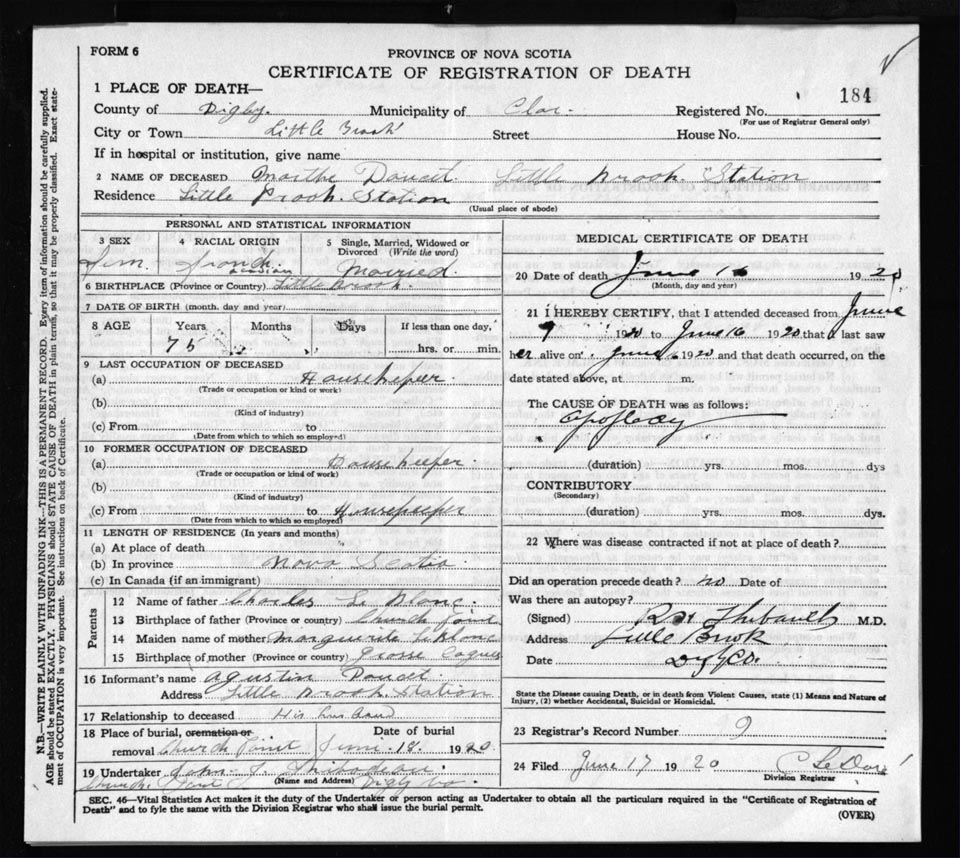 FORM 6
PROVINCE OF NOVA SCOTIA
CERTIFICATE OF REGISTRATION OF DEATH
184
1 PLACE OF DEATH—
County of Digby. Municipality of Clar. Registered No.
(For use of Registrar General only)
City or Town Little Brook Street House No.
If in hospital or institution, give name
2 NAME OF DECEASED Marthe Doucet. Little Brook Station
Residence Little Brook. Station
(Usual place of abode)
PERSONAL AND STATISTICAL INFORMATION
3 SEX 4 RACIAL ORIGIN 5 Single, Married, Widowed or Divorced (Write the word)
Fem. French acadian Married.
6 BIRTHPLACE (Province or Country) Little Brook.
7 DATE OF BIRTH (month, day and year)
8 AGE Years Months Days If less than one day,
hrs. or min.
9 LAST OCCUPATION OF DECEASED
(a) Housekeeper.
(Trade or occupation or kind or work)
(b)
(Kind of industry)
(c) From to
(Date from which to which so employed)
10 FORMER OCCUPATION OF DECEASED
(a) Housekeeper.
(Trade or occupation or kind of work)
(b)
(Kind of industry)
(c) From to Housekeeper
(Date from which to which so employed)
11 LENGTH OF RESIDENCE (In years and months)
(a) At place of death
(b) In province Nova Scotia
(c) In Canada (if an immigrant)
Parents
12 Name of father Charles Le Blanc.
13 Birthplace of father (Province or country) Church Point
14 Maiden name of mother Marguerite LeBlanc
15 Birthplace of mother (Province or country) Grosse Coques
16 Informant's name Agustin Doucet.
Address Little Brook. Station
17 Relationship to deceased His husband
18 Place of burial, cremation or removal Church Point Date of burial June 18. 1920.
19 Undertaker John J. Thibodeau.
(Name and Address)
Church. Point Digby Co.
MEDICAL CERTIFICATE OF DEATH
20 Date of death June 16 1920
(Month, day and year)
21 I HEREBY CERTIFY, that I attended deceased from June
9 1920 to June 16 1920 that I last saw
her alive on June 16 1920 and that death occurred, on the
date stated above, at m.
The CAUSE OF DEATH was as follows:
Apoplexy
(duration) yrs. mos. dys
CONTRIBUTORY
(Secondary)
(duration) yrs. mos. dys.
22 Where was disease contracted if not at place of death?
Did an operation precede death? no Date of
Was there an autopsy?
(Signed) Thibault M.D.
Address Little Brook
Date Digby Co.
State the Disease causing Death, or in death from Violent Causes, state (1) Means and Nature of
Injury, (2) whether Accidental, Suicidal or Homicidal.
23 Registrar's Record Number 9
24 Filed June 17 1920
Division Registrar
SEC. 46—Vital Statistics Act makes it the duty of the Undertaker or person acting as Undertaker to obtain all the particulars required in the "Certificate of Registration of
Death" and to fyle the same with the Division Registrar who shall issue the burial permit.
(OVER)
N.B.—WRITE PLAINLY WITH UNFADING INK—THIS IS A PERMANENT RECORD. Every item of information should be carefully supplied.
AGE should be stated EXACTLY. PHYSICIANS should STATE CAUSE OF DEATH in plain terms, so that it may be properly classified. Exact state-
ment of OCCUPATION is very important. See instructions on back of Certificate.